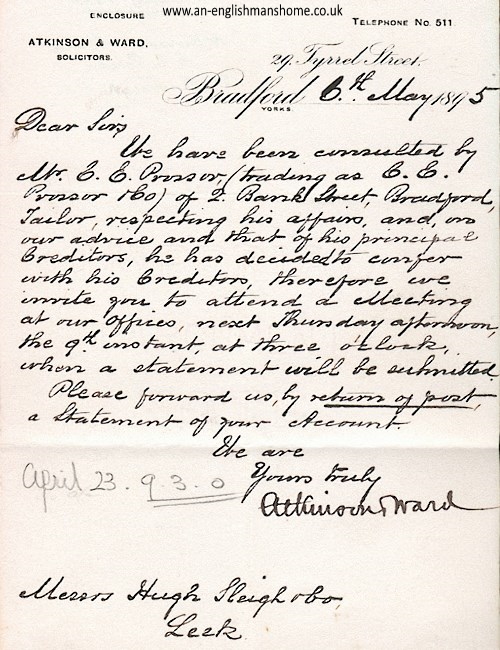 www.an-englishmanshome.co.uk
ENCLOSURE
TELEPHONE No. 511.
ATKINSON & WARD,
SOLICITORS.
29, Tyrrel Street,
Bradford 6th. May 1895
YORKS.
Dear Sirs,
We have been consulted by
Mr. C. E. Prossor, (trading as C. E.
Prossor & Co) of 2 Bank Street, Bradford,
Tailor, respecting his affairs, and, on
our advice and that of his principal
Creditors, he has decided to confer
with his Creditors, therefore we
invite you to attend a Meeting
at our Offices, next Thursday afternoon,
the 9th instant, at three o'clock,
when a statement will be submitted.
Please forward us, by return of post,
a Statement of your Account.
We are
Yours truly
Atkinson & Ward
April 23. 9.3.0
Messrs Hugh Sleigh &Co,
Leek